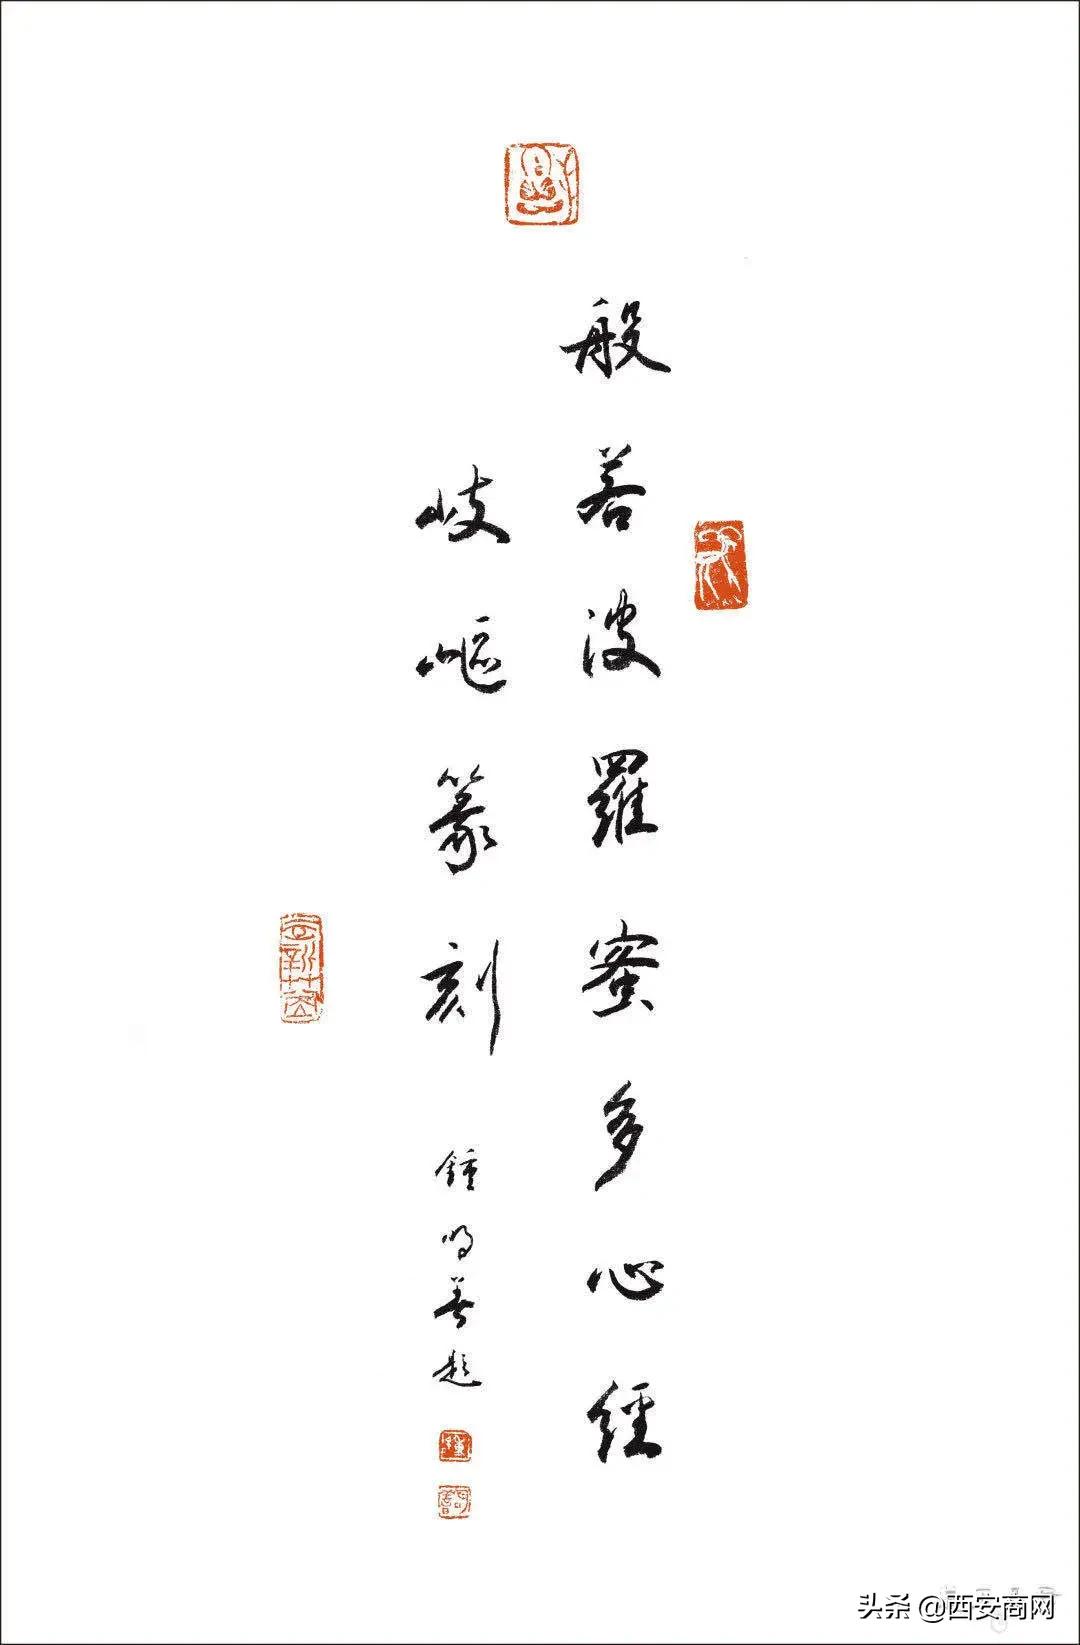 般若波羅蜜多心經
岐岖篆刻
鍾明善題
头条 @西安商网